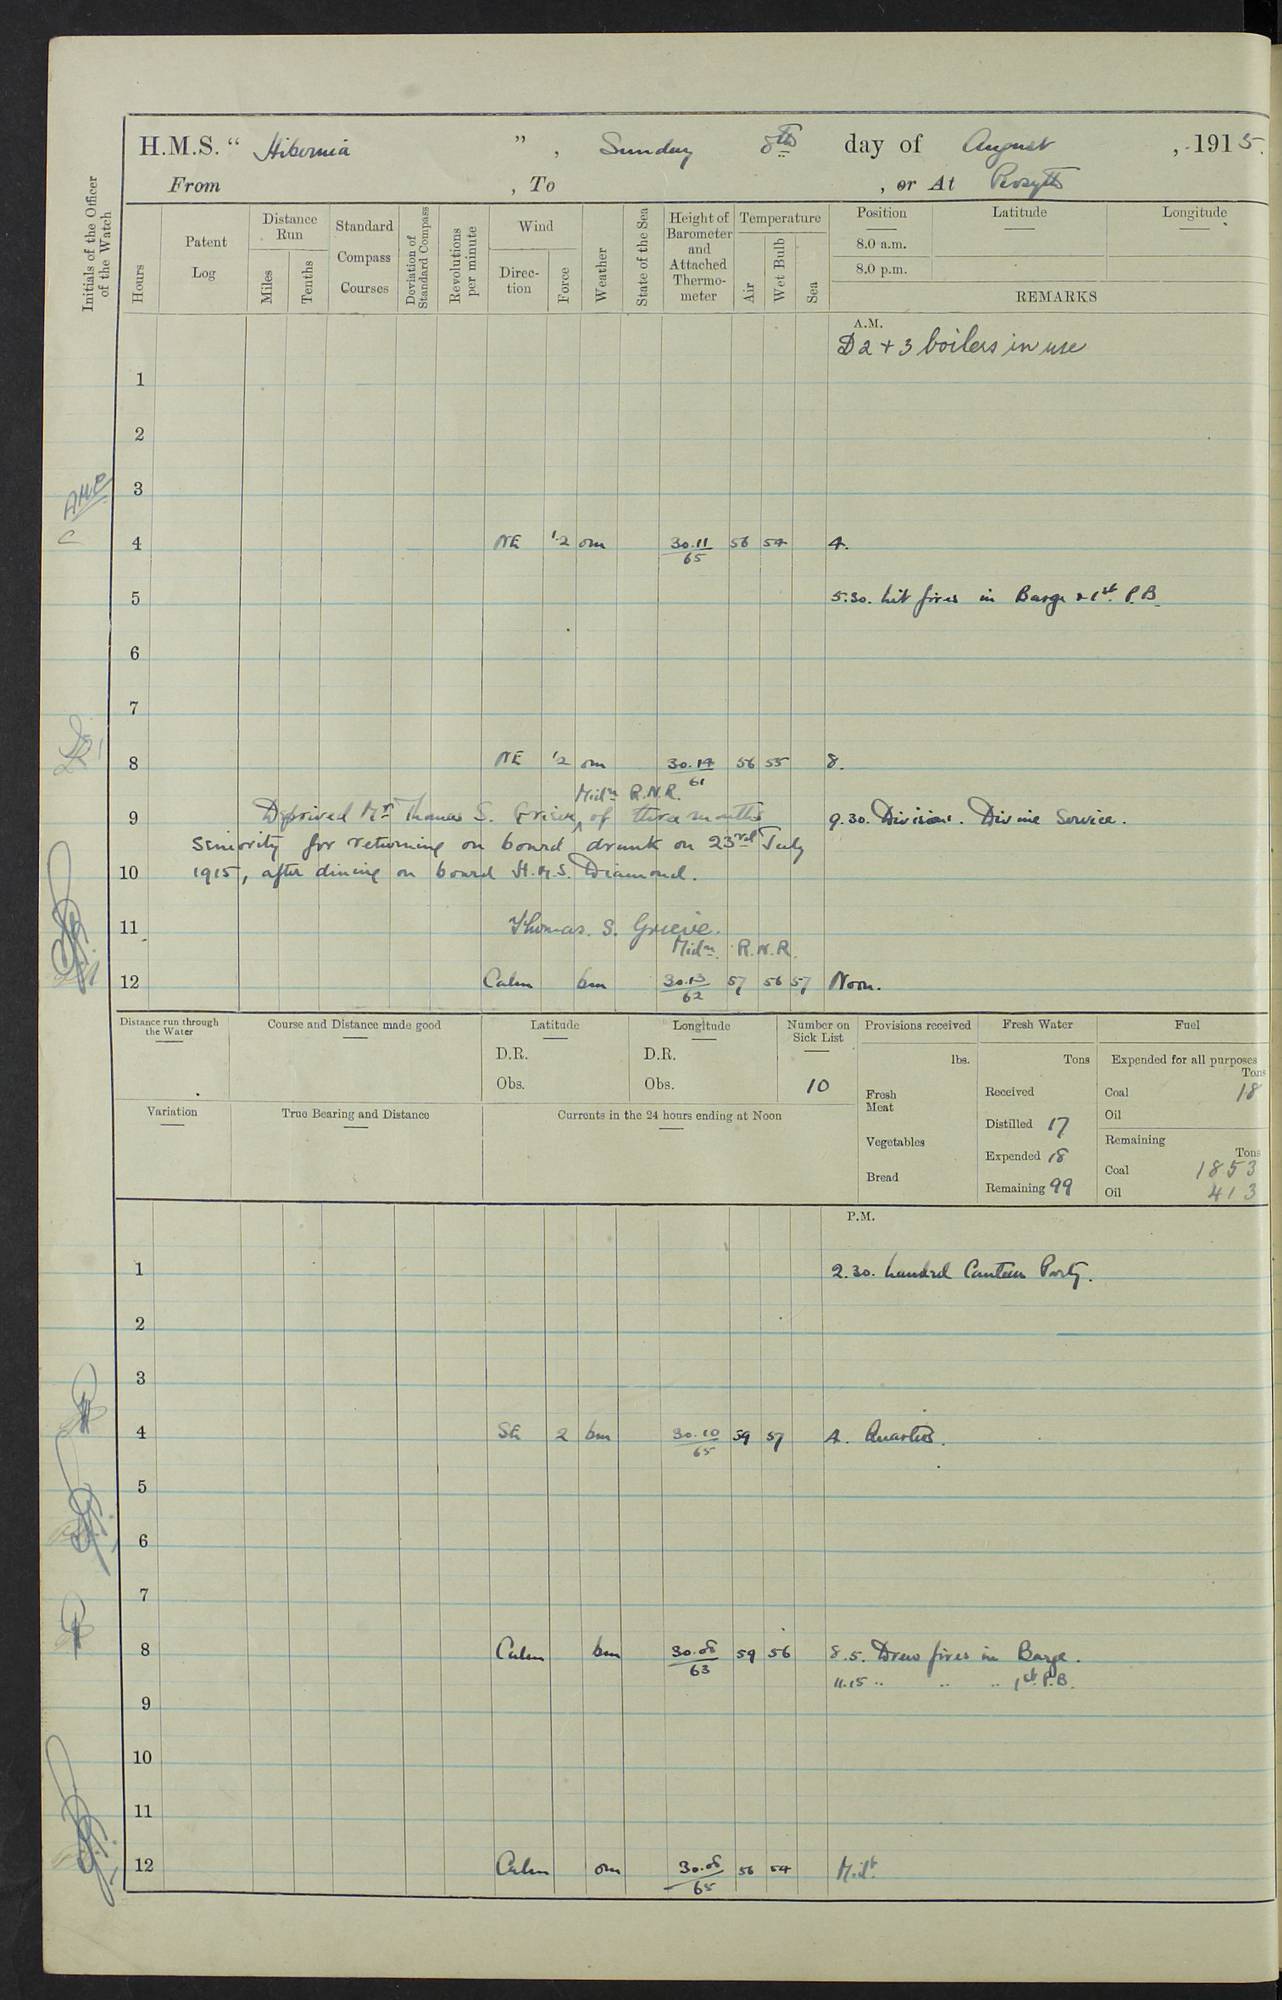 H.M.S. " Hibernia ", Sunday 8th day of August, 1915.
From , To , or At Rosyth
Initials of the Officer of the Watch
Hours
Patent Log
Distance Run
Miles
Tenths
Standard Compass Courses
Deviation of Standard Compass
Revolutions per minute
Wind
Direction
Force
Weather
State of the Sea
Height of Barometer and Attached Thermometer
Temperature
Air
Wet Bulb
Sea
Position
Latitude
Longitude
8.0 a.m.
8.0 p.m.
REMARKS
A.M.
D 2 + 3 boilers in use
1
2
3
4 NE 1.2 om 30.11/65 56 54 4.
5 5.30. Lit fires in Barge & 1st P.B.
6
7
8 NE 1.2 om 30.14/61 56 55 8.
Midn R.N.R.
9 Deprived Mr Thomas S. Grieve, of three months 9.30. Divisions. Divine Service.
seniority for returning on board drunk on 23rd July
10 1915, after dining on board H.M.S. Diamond.
11 Thomas. S. Grieve.
Midn. R.N.R.
12 Calm bm 30.13/62 57 56 57 Noon.
Distance run through the Water
Course and Distance made good
Latitude
Longitude
Number on Sick List
Provisions received
Fresh Water
Fuel
D.R. D.R. lbs. Tons Expended for all purposes
Tons
Obs. Obs. 10
Fresh Meat
Received
Coal 18
Oil
Variation
True Bearing and Distance
Currents in the 24 hours ending at Noon
Distilled 17
Vegetables
Remaining
Tons
Expended 18
Coal 1853
Bread
Remaining 99
Oil 413
P.M.
1 2.30. Landed Canteen Party.
2
3
4 SE 2 bm 30.10/65 59 57 4. Quarters.
5
6
7
8 Calm bm 30.08/63 59 56 8.5. Drew fires in Barge.
11.15 " " " 1st P.B.
9
10
11
12 Calm om 30.08/65 56 54 Midt.